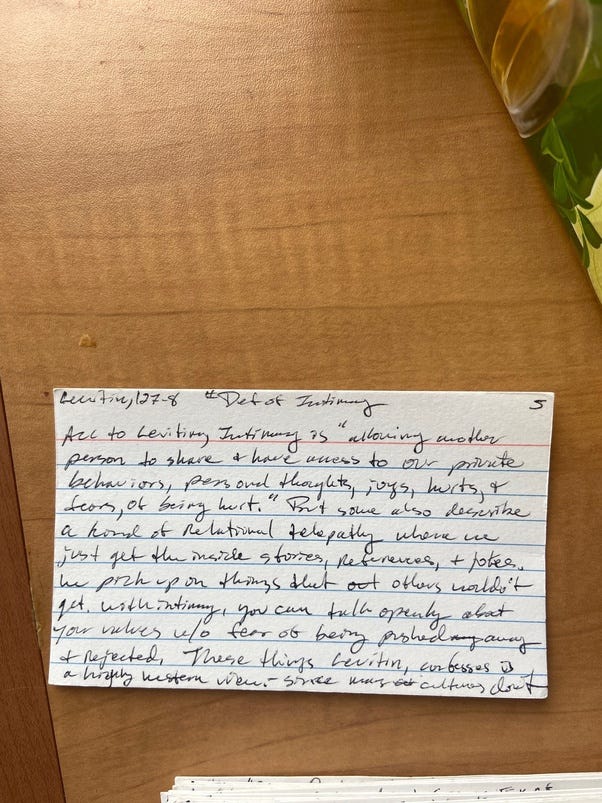 Levitin, 127-8 #Def of Intimacy 5
Acc to Levitin, Intimacy is "allowing another
person to share & have access to our private
behaviors, personal thoughts, joys, hurts, &
fears, of being hurt." But some also describe
a kind of relational telepathy where we
just get the inside stories, references, + jokes.
we pick up on things that others wouldn't
get. with intimacy, you can talk openly about
your values w/o fear of being pushed away
& rejected. These things Levitin, confesses is
a highly western view - since many cultures don't